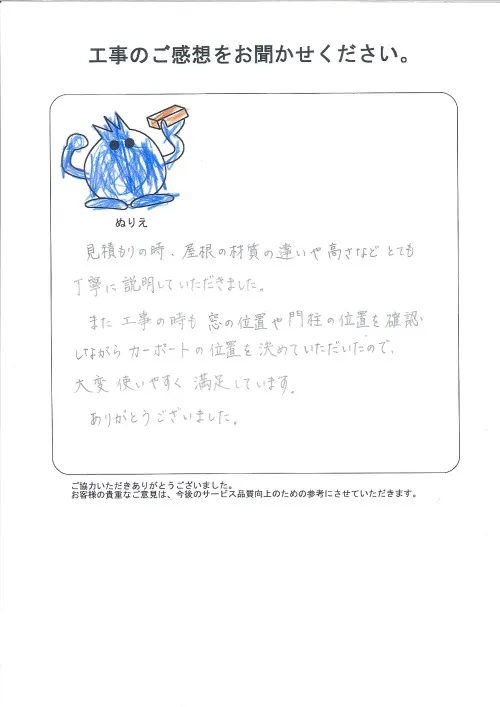 工事のご感想をお聞かせください。
ぬりえ
見積もりの時、屋根の材質の違いや高さなどとても
丁寧に説明していただきました。
また工事の時も窓の位置や門柱の位置を確認
しながらカーポートの位置を決めていただいたので、
大変使いやすく満足しています。
ありがとうございました。
ご協力いただきありがとうございました。
お客様の貴重なご意見は、今後のサービス品質向上のための参考にさせていただきます。